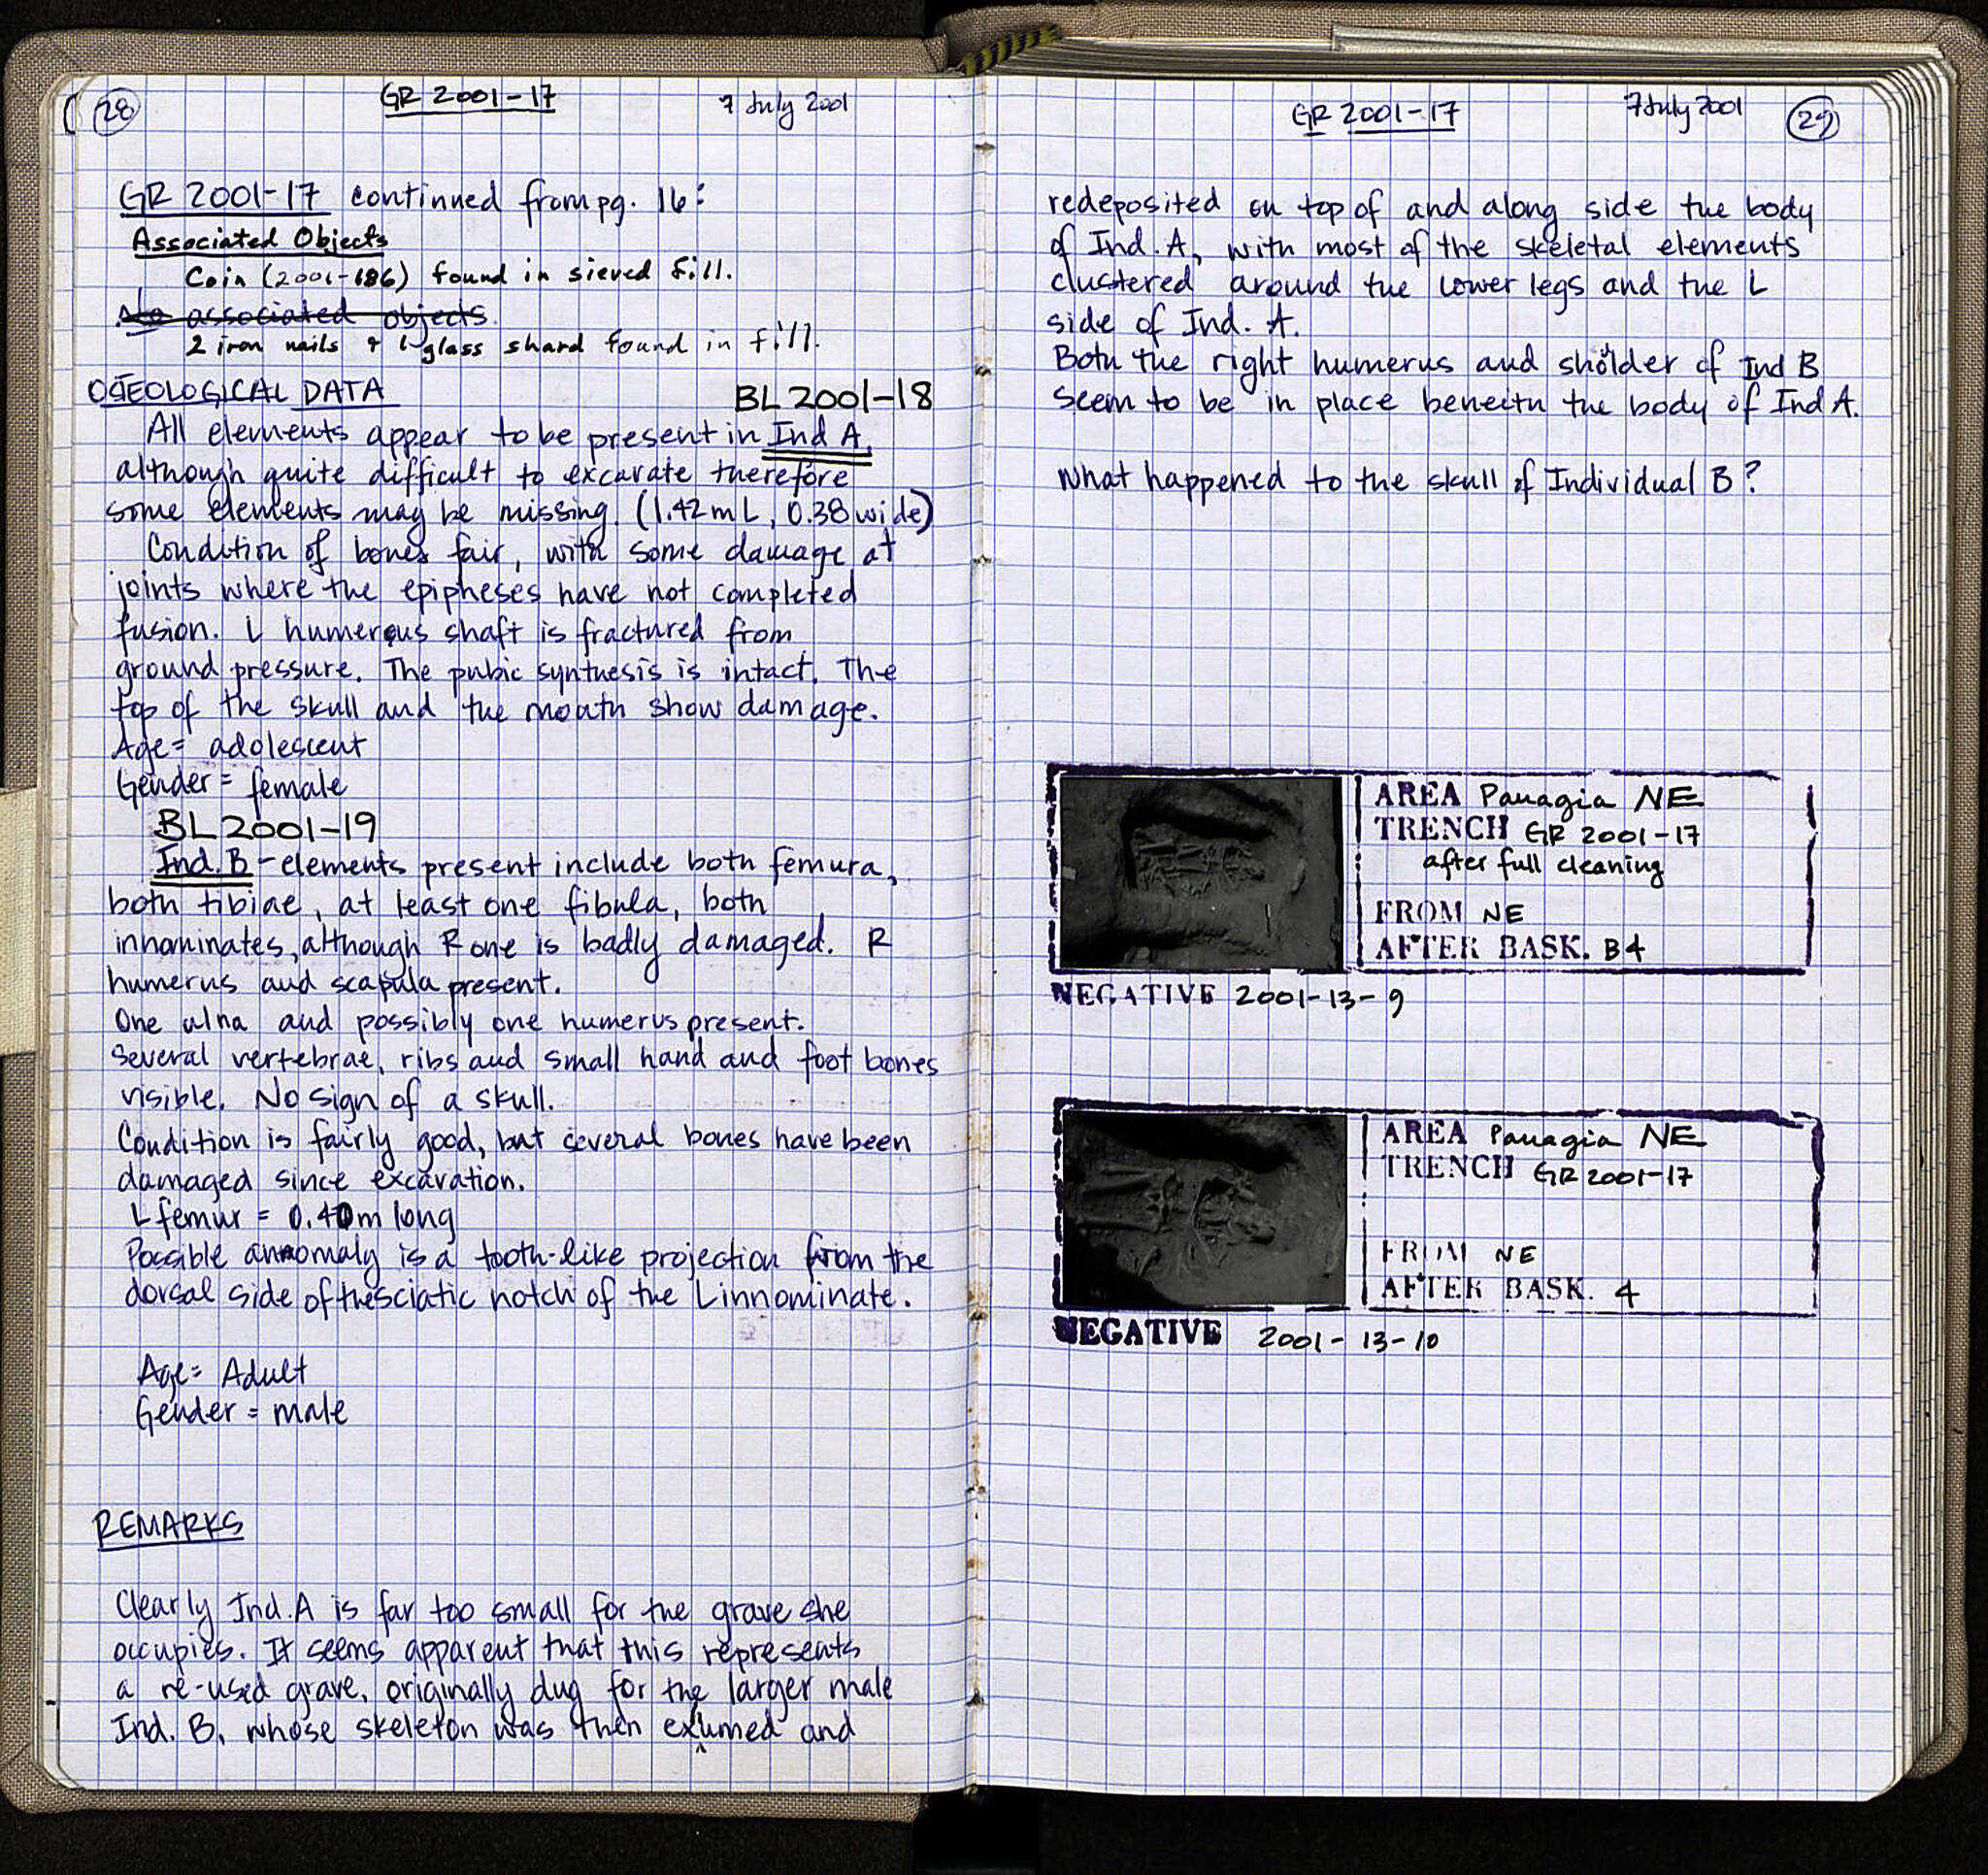 28
GR 2001-17
7 July 2001
GR 2001-17 continued from pg. 16:
Associated Objects
Coin (2001-186) found in sieved fill.
No associated objects.
2 iron nails + 1 glass shard found in fill.
OSTEOLOGICAL DATA BL 2001-18
All elements appear to be present in Ind A,
although quite difficult to excavate therefore
some elements may be missing. (1.42m L, 0.38 wide)
Condition of bones fair, with some damage at
joints where the epipheses have not completed
fusion. L humerus shaft is fractured from
ground pressure. The pubic synthesis is intact. The
top of the skull and the mouth show damage.
Age = adolescent
Gender = female
BL 2001-19
Ind. B - elements present include both femura,
both tibiae, at least one fibula, both
innominates, although R one is badly damaged. R
humerus and scapula present.
One ulna and possibly one humerus present.
Several vertebrae, ribs and small hand and foot bones
visible. No sign of a skull.
Condition is fairly good, but several bones have been
damaged since excavation.
L femur = 0.40m long
Possible anomaly is a tooth-like projection from the
dorsal side of the sciatic notch of the L innominate.
Age = Adult
Gender = male
REMARKS
Clearly Ind. A is far too small for the grave she
occupies. It seems apparent that this represents
a re-used grave, originally dug for the larger male
Ind. B, whose skeleton was then exumed and
GR 2001-17
7 July 2001
29
redeposited on top of and along side the body
of Ind. A, with most of the skeletal elements
clustered around the lower legs and the L
side of Ind. A.
Both the right humerus and shoulder of Ind B
seem to be in place beneith the body of Ind A.
What happened to the skull of Individual B?
AREA Panagia NE
TRENCH GR 2001-17
after full cleaning
FROM NE
AFTER BASK. B4
NEGATIVE 2001-13-9
AREA Panagia NE
TRENCH GR 2001-17
FROM NE
AFTER BASK. 4
NEGATIVE 2001-13-10